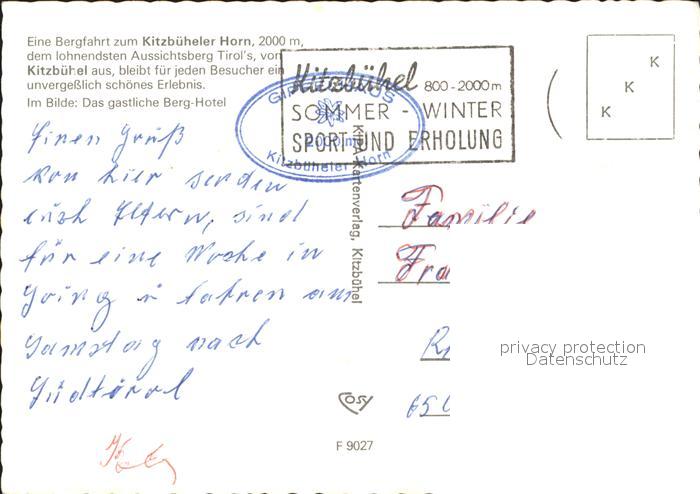 Eine Bergfahrt zum Kitzbüheler Horn, 2000 m,
dem lohnendsten Aussichtsberg Tirol's, von
Kitzbühel aus, bleibt für jeden Besucher ein
unvergeßlich schönes Erlebnis.
Im Bilde: Das gastliche Berg-Hotel
Kitzbühel 800-2000m
SOMMER - WINTER
SPORT UND ERHOLUNG
2000 m
Kitzbüheler Horn
K
K
K
Einen Gruß
von hier senden
euch Eltern, sind
für eine Woche in
Going u fahren am
Samstag nach
Südtirol
KIPA-Kartenverlag, Kitzbühel
Familie
Fra
privacy protection
Datenschutz
650
COSY
F 9027